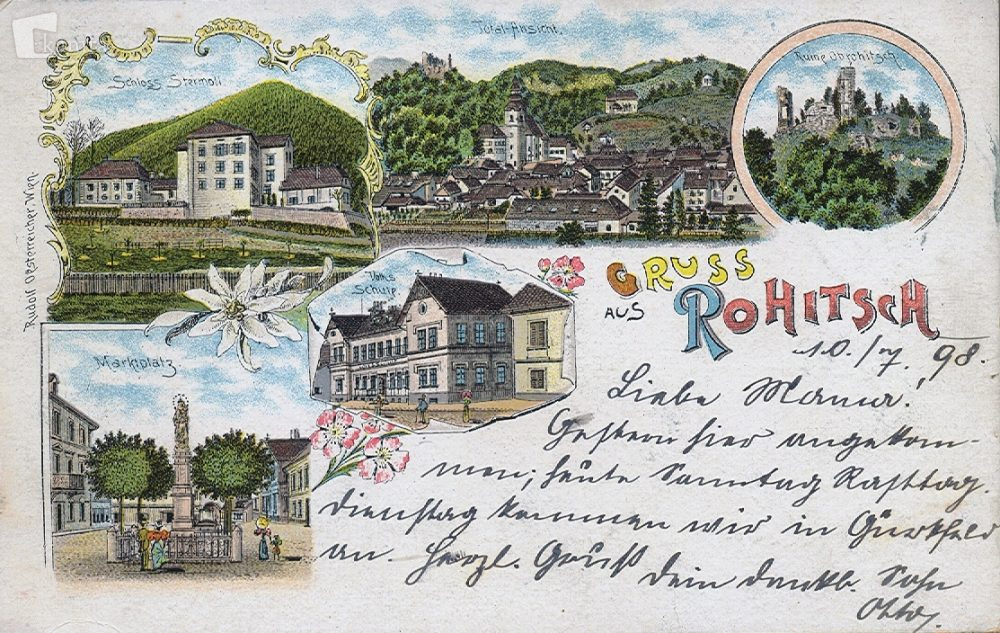 Schloss Stermoll
Total-Ansicht.
Ruine Obrohitsch
Rudolf Oesterreicher Wien.
Volks
Schule
Marktplatz
GRUSS
AUS ROHITSCH
10./7. 98.
Liebe Mama.
Gestern hier angekom-
men; heute Sonntag Rasttag.
Dienstag kommen wir in Gurkfeld
an. Herzl. Gruß
Dein dankb. Sohn
Otto.